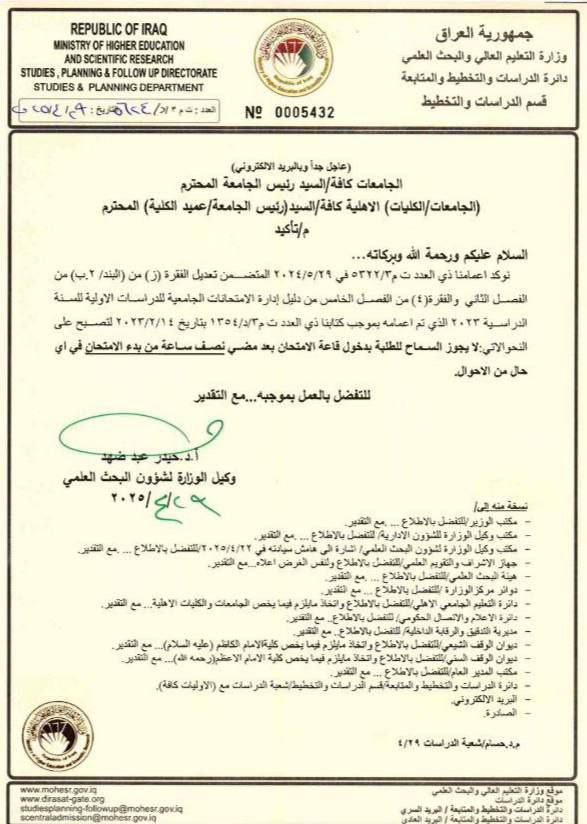 REPUBLIC OF IRAQ
MINISTRY OF HIGHER EDUCATION
AND SCIENTIFIC RESEARCH
STUDIES , PLANNING & FOLLOW UP DIRECTORATE
STUDIES & PLANNING DEPARTMENT
جمهورية العراق
وزارة التعليم العالي والبحث العلمي
دائرة الدراسات والتخطيط والمتابعة
قسم الدراسات والتخطيط
العدد : ت م ٣/د/
التاريخ:
№ 0005432
(عاجل جداً وبالبريد الالكتروني)
الجامعات كافة/السيد رئيس الجامعة المحترم
(الجامعات/الكليات) الاهلية كافة/السيد(رئيس الجامعة/عميد الكلية) المحترم
م/تأكيد
السلام عليكم ورحمة الله وبركاته...
نوكد اعمامنا ذي العدد ت م٥٣٢٢/٣ في ٢٠٢٤/٥/٢٩ المتضمن تعديل الفقرة (ز) من (البند/ ٢.ب) من
الفصل الثاني والفقرة(٤) من الفصل الخامس من دليل إدارة الامتحانات الجامعية للدراسات الاولية للسنة
الدراسية ٢٠٢٣ الذي تم اعمامه بموجب كتابنا ذي العدد ت م٣/د/١٣٥٤ بتاريخ ٢٠٢٣/٢/١٤ لتصبح على
النحوالاتي:لا يجوز السماح للطلبة بدخول قاعة الامتحان بعد مضي نصف ساعة من بدء الامتحان في اي
حال من الاحوال.
للتفضل بالعمل بموجبه...مع التقدير
أ.د.حيدر عبد ضهد
وكيل الوزارة لشؤون البحث العلمي
٢٠٢٥/٤/٢٩
نسخة منه إلى/
- مكتب الوزير/للتفضل بالاطلاع ... .مع التقدير.
- مكتب وكيل الوزارة للشؤون الادارية/ للتفضل بالاطلاع ... .مع التقدير.
- مكتب وكيل الوزارة لشؤون البحث العلمي/ اشارة الى هامش سيادته في ٢٠٢٥/٤/٢٢/للتفضل بالاطلاع ... .مع التقدير.
- جهاز الاشراف والتقويم العلمي/للتفضل بالاطلاع ولنفس الغرض اعلاه...مع التقدير.
- هيئة البحث العلمي/للتفضل بالاطلاع ... .مع التقدير.
- دوائر مركزالوزارة /للتفضل بالاطلاع ... مع التقدير.
- دائرة التعليم الجامعي الاهلي/للتفضل بالاطلاع واتخاذ مايلزم فيما يخص الجامعات والكليات الاهلية... مع التقدير.
- دائرة الاعلام والاتصال الحكومي/ للتفضل بالاطلاع.. مع التقدير.
- مديرية التدقيق والرقابة الداخلية/ للتفضل بالاطلاع.. مع التقدير.
- ديوان الوقف الشيعي/للتفضل بالاطلاع واتخاذ مايلزم فيما يخص كليةالامام الكاظم (عليه السلام)... مع التقدير.
- ديوان الوقف السني/للتفضل بالاطلاع واتخاذ مايلزم فيما يخص كلية الامام الاعظم(رحمه الله)... مع التقدير.
- مكتب المدير العام/للتفضل بالاطلاع ... مع التقدير.
- دائرة الدراسات والتخطيط والمتابعة/قسم الدراسات والتخطيط/شعبة الدراسات مع (الاوليات كافة).
- البريد الالكتروني.
- الصادرة.
م.د.حسام/شعبة الدراسات ٤/٢٩
www.mohesr.gov.iq
www.dirasat-gate.org
studiesplanning-followup@mohesr.gov.iq
scentraladmission@mohesr.gov.iq
موقع وزارة التعليم العالي والبحث العلمي
موقع دائرة الدراسات
دائرة الدراسات والتخطيط والمتابعة / البريد السري
دائرة الدراسات والتخطيط والمتابعة / البريد العادي